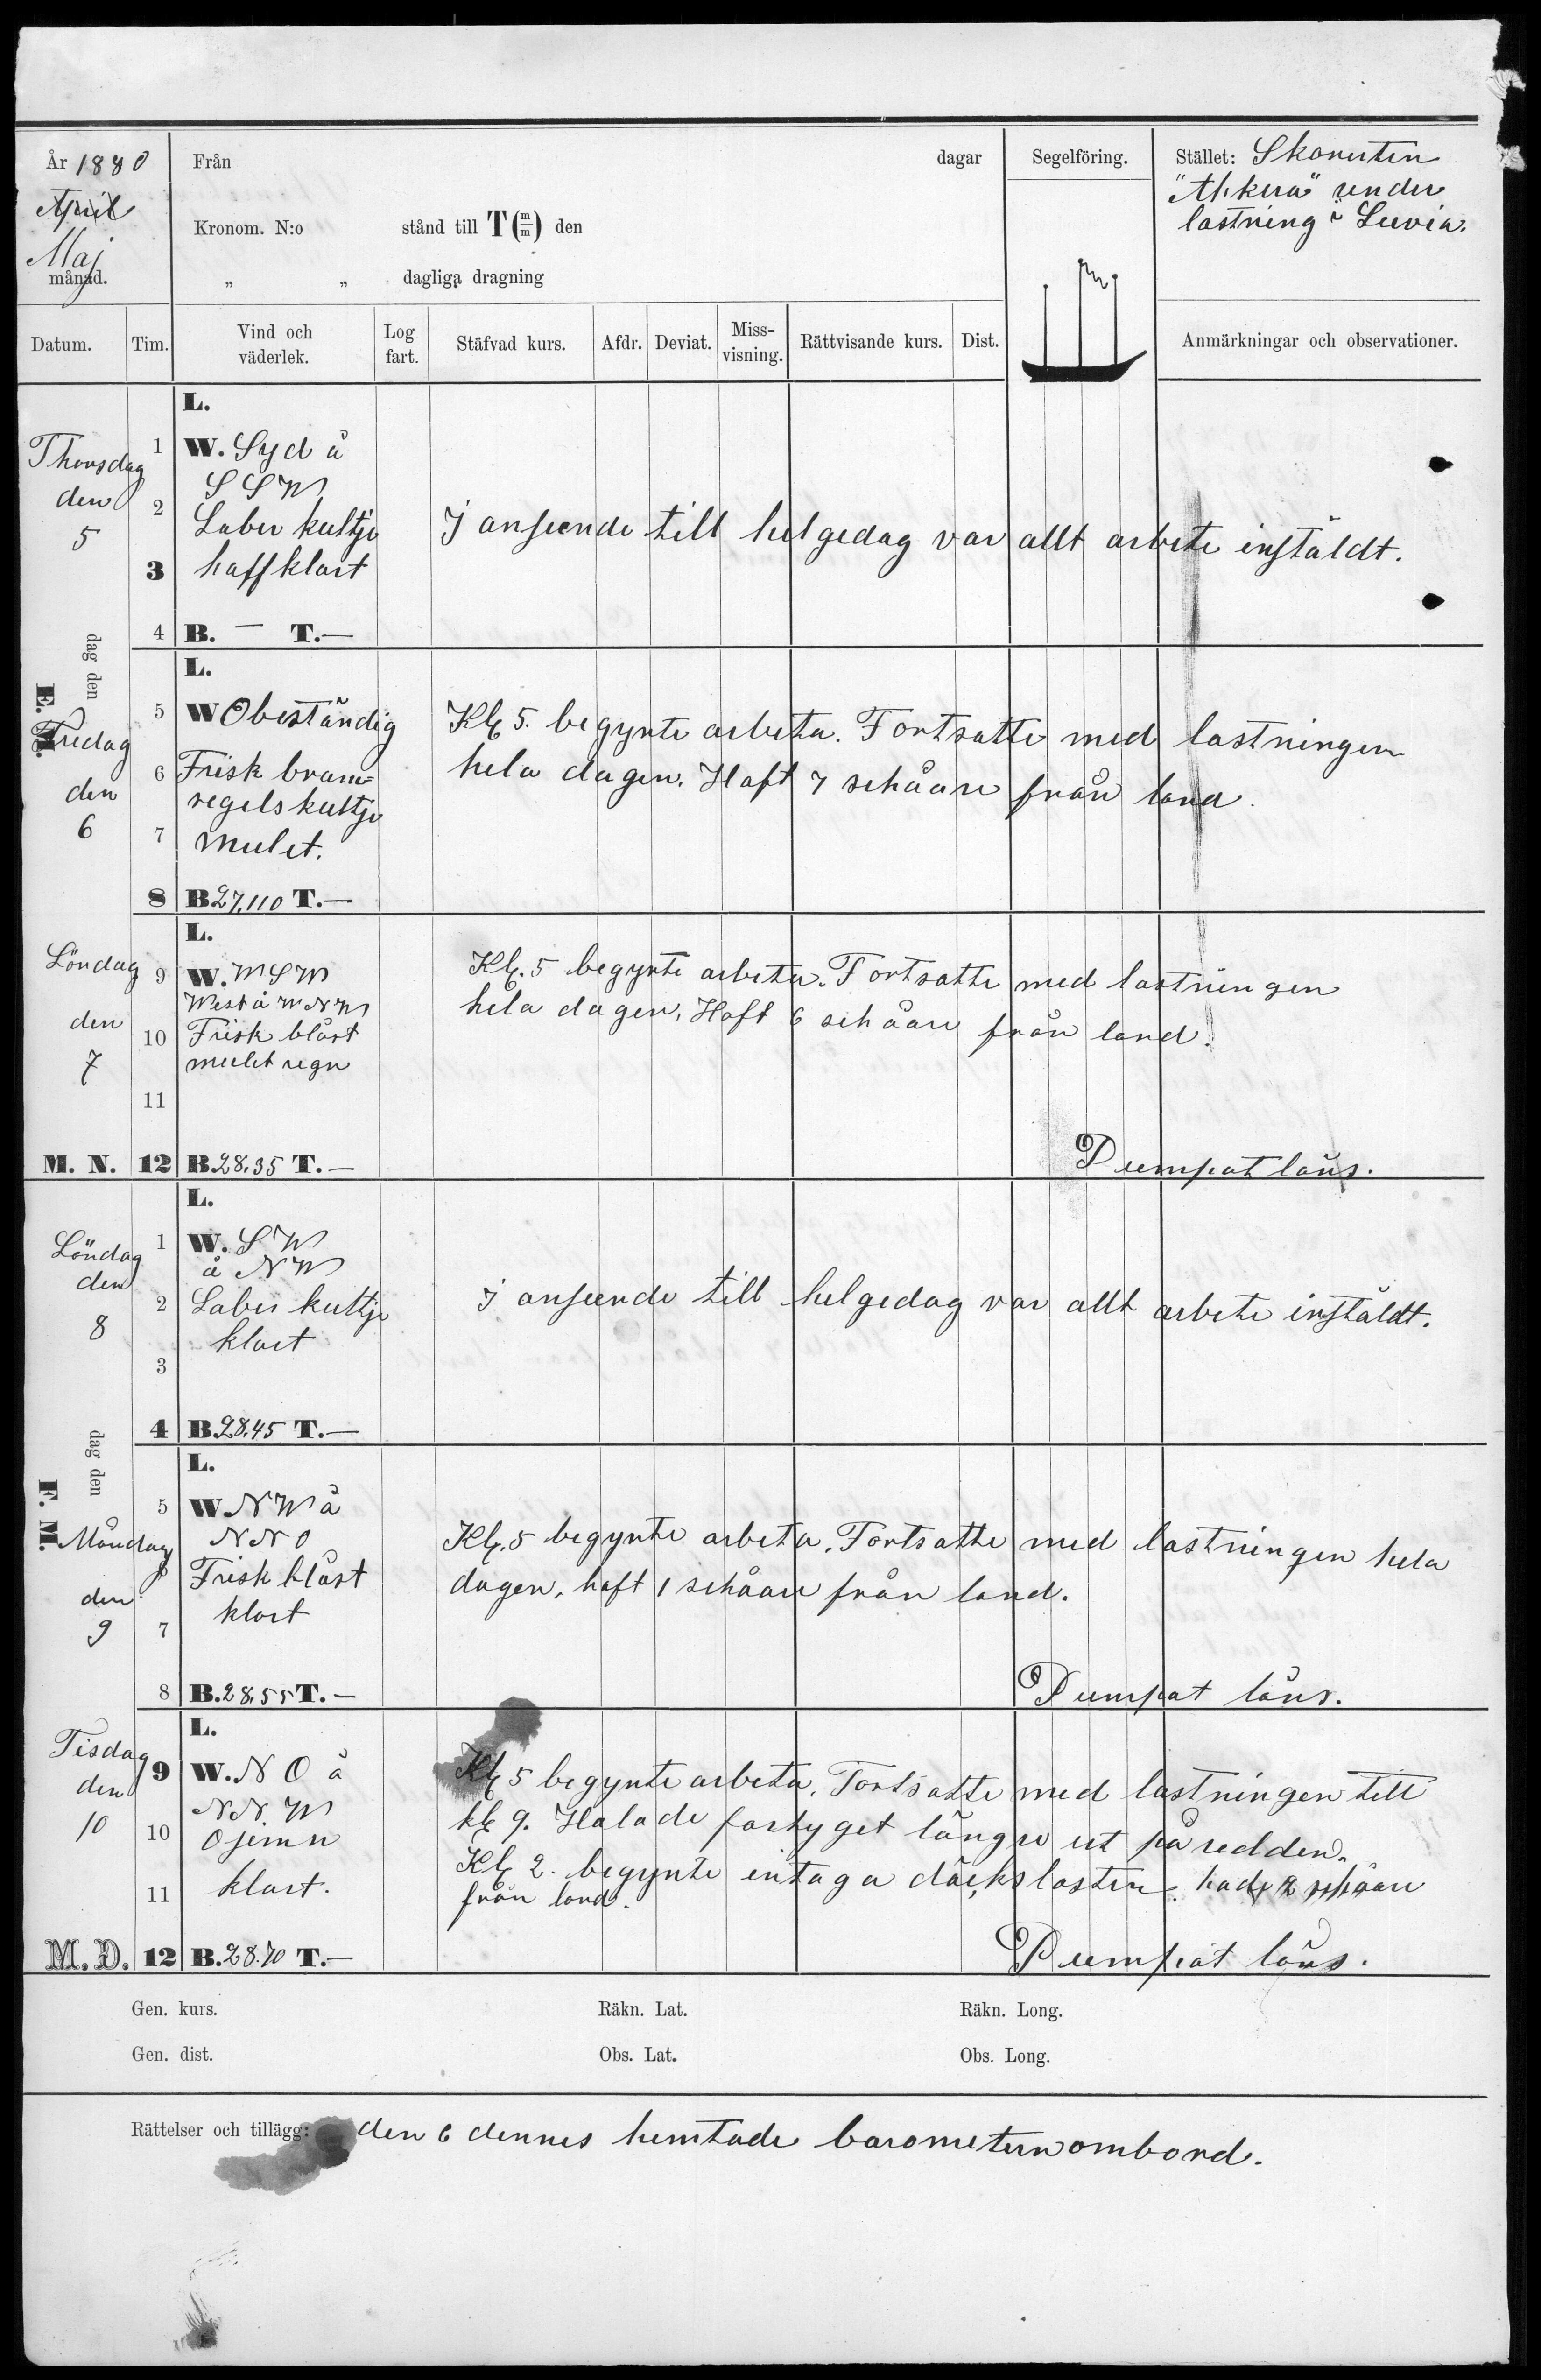 År 1880
Från
dagar
Segelföring.
Stället: Skonerten
"Ahkera" under
lastning i Luvia.
April
Maj
månad.
Kronom. N:o
stånd till T (m/m) den
„ „ dagliga dragning
Datum.
Tim.
Vind och väderlek.
Log fart.
Stäfvad kurs.
Afdr.
Deviat.
Miss-visning.
Rättvisande kurs.
Dist.
Anmärkningar och observationer.
L.
Thorsdag
den
5
1 W. Syd å
S S W
2 Laber kultje
3 haffklart
4 B. — T. —
I anseende till helgedag var allt arbete instäldt.
dag den
E. M.
L.
Fredag
den
6
5 W Obeständig
6 Frisk bram=
segelskultje
7 mulet.
8 B. 27,110 T. —
Kl 5. begynte arbeta. Fortsatte med lastningen
hela dagen. Haft 7 sehåare från land.
L.
Löndag
den
7
9 W. W S W
West å W N W
10 Frisk blåst
mulet regn
11
M. N. 12 B. 28,35 T. —
Kl. 5 begynte arbeta. Fortsatte med lastningen
hela dagen. Haft 6 sehåare från land.
Pumpat läns.
L.
Löndag
den
8
1 W. S W
å N W
2 Laber kultje
klart
3
4 B. 28,45 T. —
I anseende till helgedag var allt arbete instäldt.
dag den
F. M.
L.
Måndag
den
9
5 W. N W å
N N O
Frisk blåst
klart
7
8 B. 28,55 T. —
Kl. 5 begynte arbeta. Fortsatte med lastningen hela
dagen, haft 1 sehåare från land.
Pumpat läns.
L.
Tisdag
den
10
9 W. N O å
N N. W
10 Ojemn
11 klart.
M. D. 12 B. 28.70 T. —
Kl 5 begynte arbeta. Fortsatte med lastningen till
kl 9. Halade fartyget längre ut på redden.
Kl 2. begynte intaga däckslasten. hade 2 sehåare
från land.
Pumpat läns.
Gen. kurs.
Räkn. Lat.
Räkn. Long.
Gen. dist.
Obs. Lat.
Obs. Long.
Rättelser och tillägg: den 6 dennes hemtade barometern ombord.